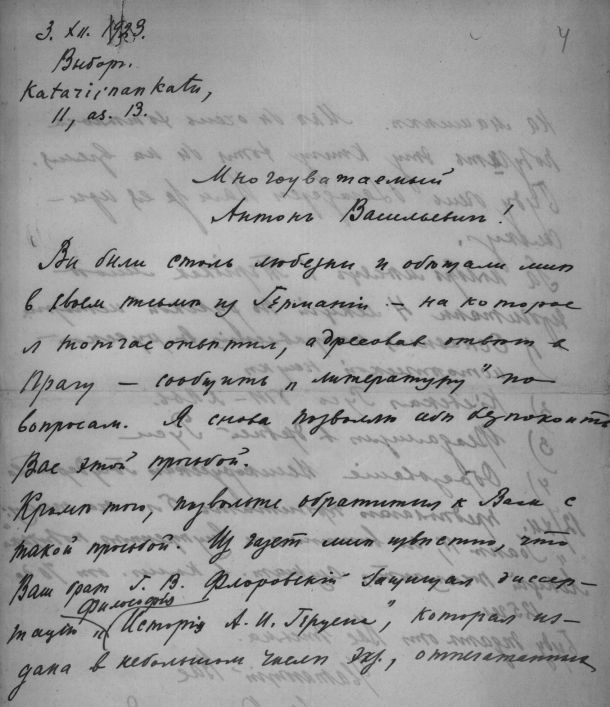 3. XII. 1933.
Выборг.
Katariinankatu,
11, as. 13.
4
Многоуважаемый
Антонъ Васильевич!
Вы были столь любезны и обещали мнѣ
в своем письмѣ из Германіи – на которое
я тотчас отвѣтил, адресовав отвѣт в
Прагу – сообщить „литературу" по
вопросам. Я снова позволяю себѣ безпокоить
Вас этой просьбой.
Кромѣ того, позвольте обратиться к Вам с
такой просьбой. Из газет мнѣ извѣстно, что
Ваш брат Г. В. Флоровскій защищал диссер-
философія
тацію „Исторія А. И. Герцена", которая из-
дана в небольшом числѣ экз., отпечатанных